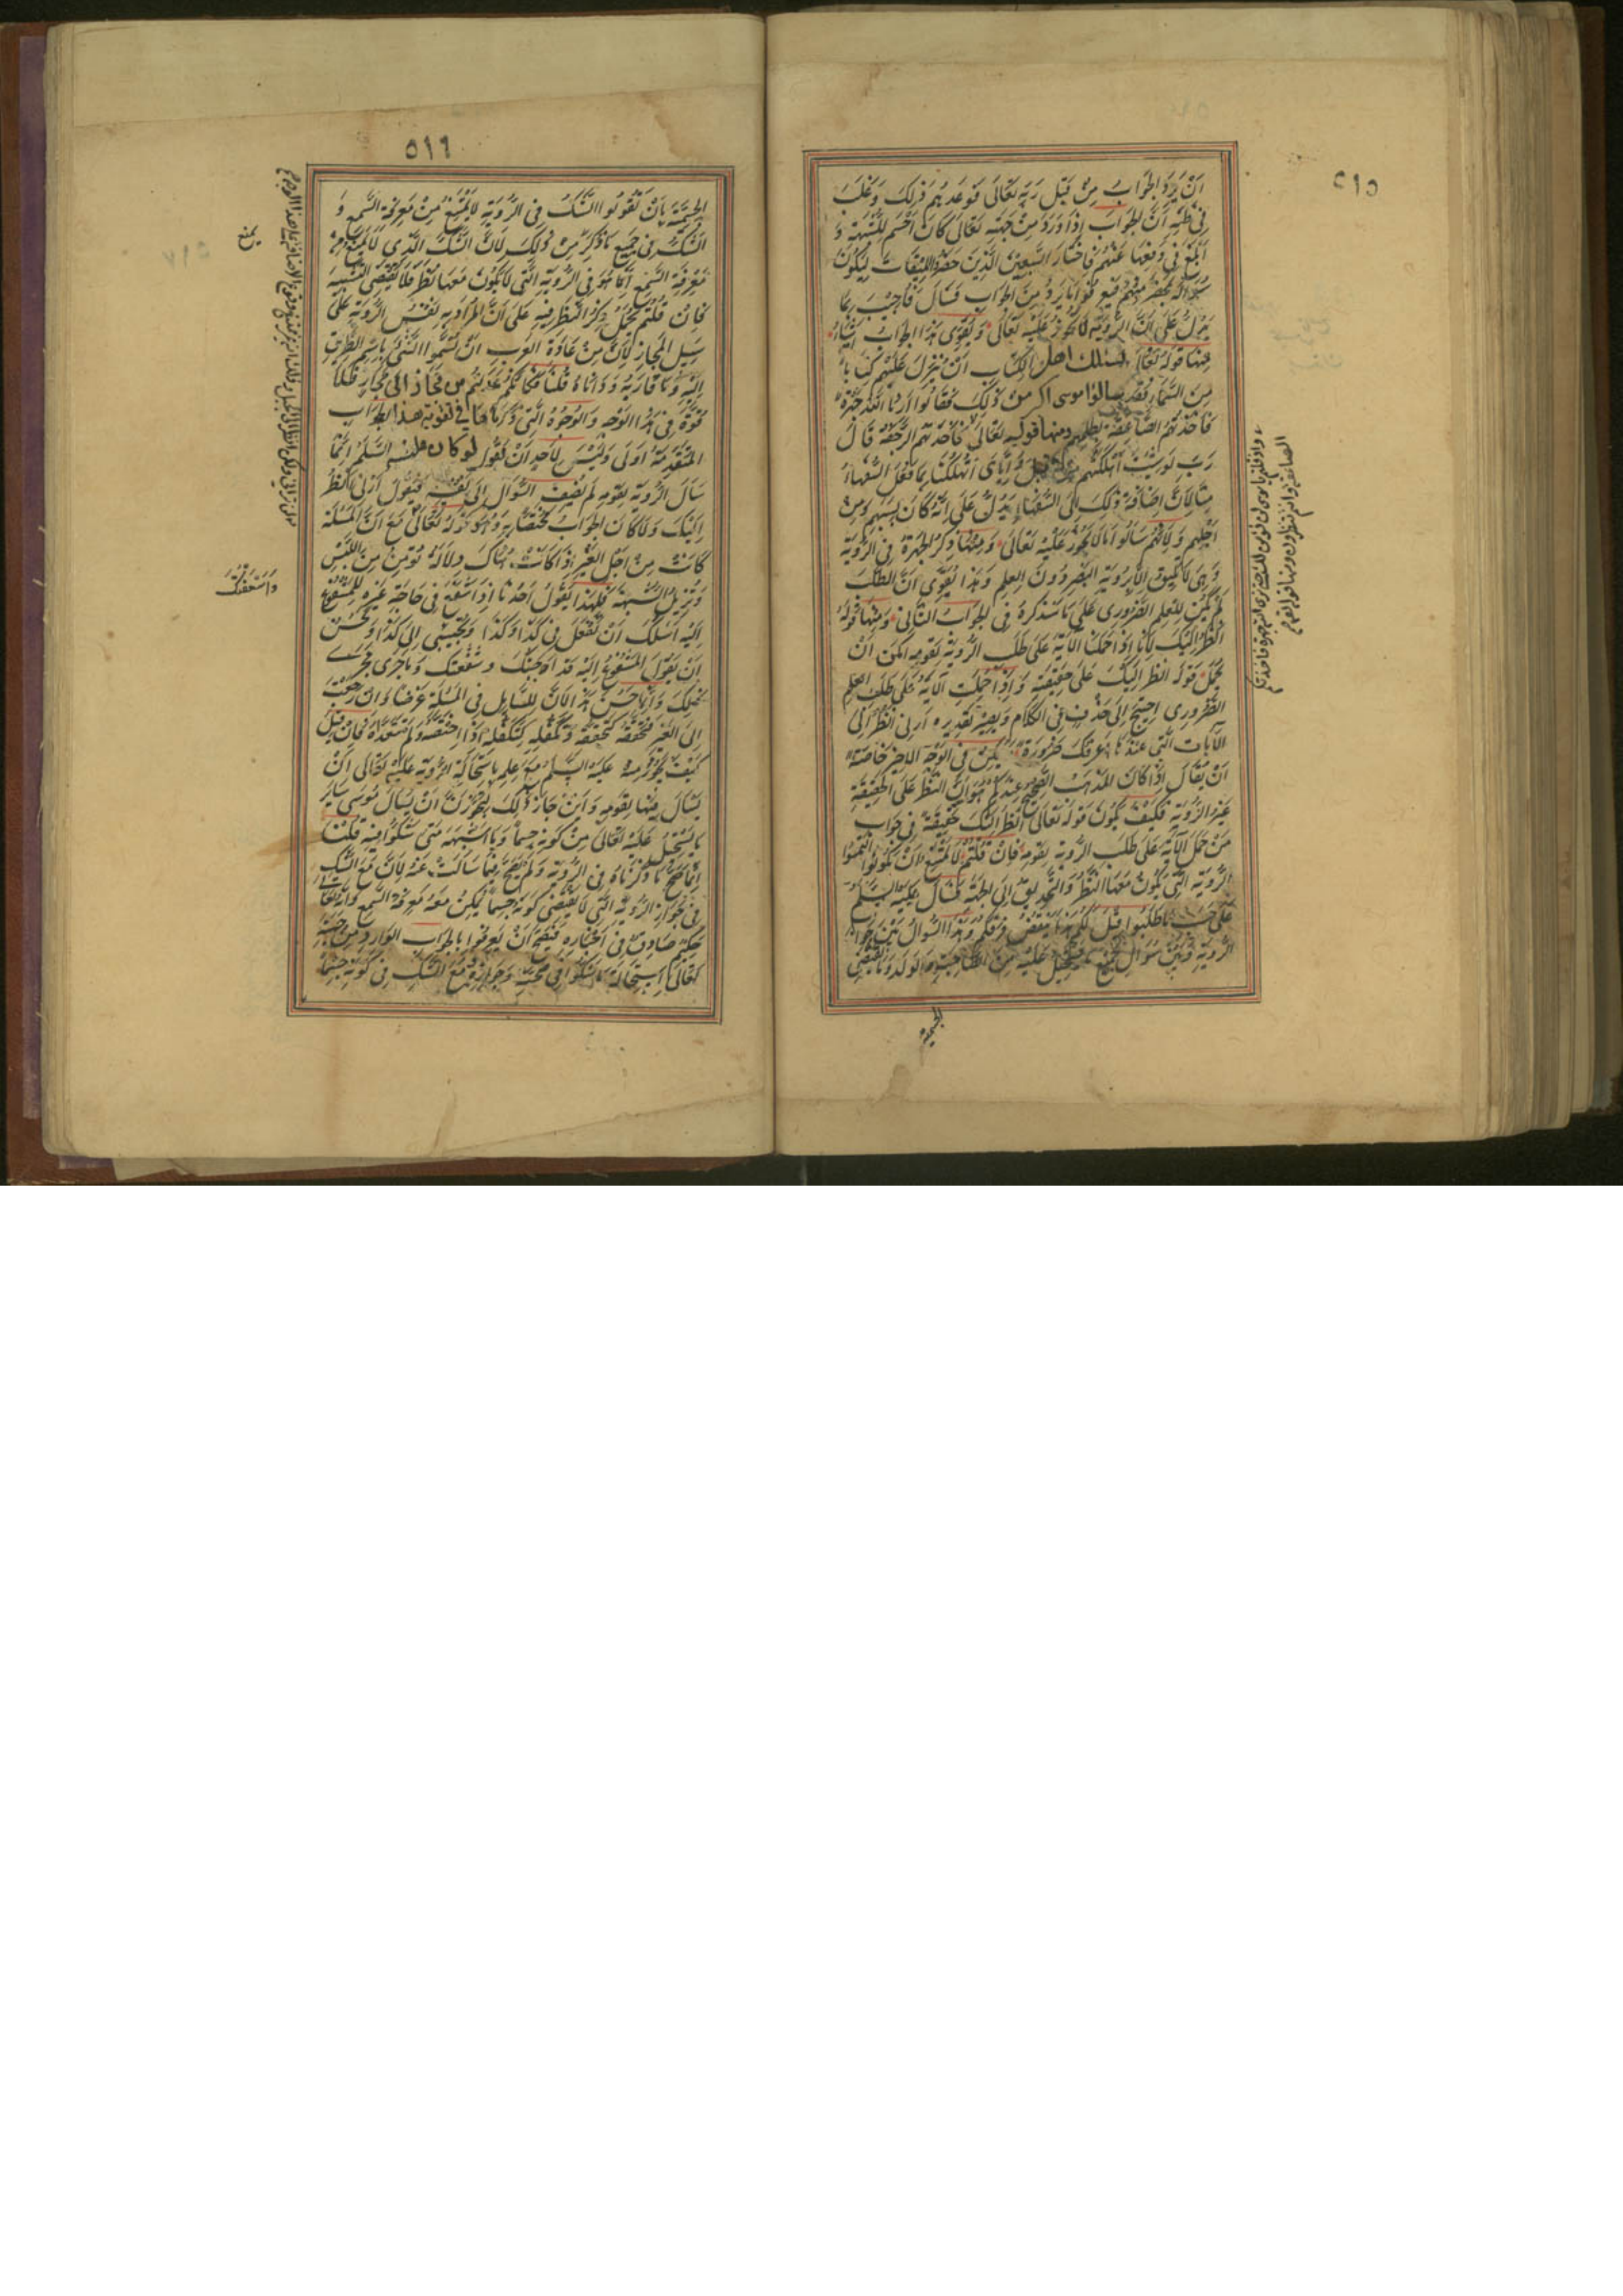 ٥١٥
اَنْ يَرِدَ الجَوَابُ مِنْ قِبَلِ رَبِّهِ تَعَالَى فَوَعَدَهُمْ ذٰلِكَ وَغَلَبَ
فِي ظَنِّهِ اَنَّ الجَوَابَ اِذَا وَرَدَ مِنْ جِهَتِهِ تَعَالَى كَانَ اَحْسَمَ لِلشُّبْهَةِ وَ
اَبْلَغَ فِي دَفْعِهَا عَنْهُمْ فَاخْتَارَ السَّبْعِينَ الَّذِينَ حَضَرُوا المِيقَاتَ لِيَكُونَ
سُؤَالُهُ بِمَحْضَرٍ مِنْهُمْ فَيَعْرِفُوا مَا يَرِدُ مِنَ الجَوَابِ فَسَأَلَ فَاُجِيبَ بِمَا
يَدُلُّ عَلَى اَنَّ الرُّؤْيَةَ لَا تَجُوزُ عَلَيْهِ تَعَالَى وَيُقَوِّى هٰذَا الجَوَابَ اَشْيَاءُ
مِنْهَا قَوْلُهُ تَعَالَى يسئلك اهل الكتاب اَنْ تُنَزِّلَ عَلَيْهِمْ كِتَابًا
مِنَ السَّمَاءِ فَقَدْ سالوا موسى اكبر من ذٰلِكَ فَقَالُوا اَرِنَا اللّٰهَ جَهْرَةً
فَاَخَذَتْهُمُ الصَّاعِقَةُ بظلمهم ومنها قوله تَعَالَى فَلَمَّا اَخَذَتْهُمُ الرَّجْفَةُ قَالَ
رَبِّ لَوْ شِئْتَ اَهْلَكْتَهُمْ مِنْ قَبْلُ وَاِيَّايَ اَتُهْلِكُنَا بِمَا فَعَلَ السُّفَهَاءُ
مِنَّا لِاَنَّ اِضَافَةَ ذٰلِكَ اِلَى السُّفَهَاءِ يَدُلُّ عَلَى اَنَّهُ كَانَ بِسَبَبِهِمْ وَمِنْ
اَجْلِهِمْ وَلِاَنَّهُمْ سَاَلُوا مَا لَا يَجُوزُ عَلَيْهِ تَعَالَى وَمِنْهَا ذِكْرُ الجَهْرَةِ فِي الرُّؤْيَةِ
وَهِيَ لَا تَلِيقُ اِلَّا بِرُؤْيَةِ البَصَرِ دُونَ العِلْمِ وَهٰذَا يُقَوِّي اَنَّ الطَّلَبَ
لَمْ يَكُنْ لِلْعِلْمِ الضَّرُورِي عَلَى مَا سَنَذْكُرُهُ فِي الجَوَابِ الثَّانِي وَمِنْهَا قَوْلُهُ
اَنْظُرْ اِلَيْكَ لِاَنَّا اِذَا حَمَلْنَا الآيَةَ عَلَى طَلَبِ الرُّؤْيَةِ لِقَوْمِهِ اَمْكَنَ اَنْ
يُحْمَلَ قَوْلُهُ اَنْظُرْ اِلَيْكَ عَلَى حَقِيقَتِهِ وَاِذَا حُمِلَتِ الآيَةُ عَلَى طَلَبِ العِلْمِ
الضَّرُورِي اِحْتِيجَ اِلَى حَذْفٍ فِي الكَلَامِ وَيَصِيرُ تَقْدِيرُهُ اَرِنِي اَنْظُرْ اِلَى
الآيَاتِ الَّتِي عِنْدَهَا اَعْرِفُكَ ضَرُورَةً يُمْكِنُ فِي الوَجْهِ الاَخِيرِ خَاصَّةً
اَنْ يُقَالَ اِذَا كَانَ المَذْهَبُ الصَّحِيحُ عِنْدَكُمْ هُوَ اَنَّ النَّظَرَ عَلَى الحَقِيقَةِ
غَيْرُ الرُّؤْيَةِ فَكَيْفَ يَكُونُ قَوْلُهُ تَعَالَى اَنْظُرْ اِلَيْكَ حَقِيقَةً فِي جَوَابِ
مَنْ حَمَلَ الآيَةَ عَلَى طَلَبِ الرُّؤْيَةِ لِقَوْمِهِ فَاِنْ قُلْتُمْ لَا يَمْتَنِعُ اَنْ يَكُونُوا الْتَمَسُوا
الرُّؤْيَةَ الَّتِي يَكُونُ مَعَهَا النَّظَرُ وَالتَّحْدِيقُ اِلَى الجِهَةِ فَسَاَلَ عَلَيْهِ السَّلَمُ
عَلَى حَسَبِ مَا طَلَبُوا قِيلَ لَكُمْ هٰذَا يَنْقُضُ فَرْقَكُمْ فِي هٰذَا السُّؤَالِ بَيْنَ جَوَازِ
الرُّؤْيَةِ وَبَيْنَ سُؤَالِ جَمِيعِ مَا يَسْتَحِيلُ عَلَيْهِ مِنَ الصَّاحِبَةِ وَالوَلَدِ وَمَا يَقْتَضِي
الجسمية
واذ قلتم يا موسى لن نؤمن لك حتى نرى الله جهرة فاخذتكم
الصاعقة وانتم تنظرون ومنها قوله تعالى
٥١٦
الجِسْمِيَّةَ بِاَنْ تَقُولُوا الشَّكُّ فِي الرُّؤْيَةِ لَا يَمْنَعُ مِنْ مَعْرِفَةِ السَّمْعِ وَ
الشَّكُّ فِي جَمِيعِ مَا ذُكِرَ مِنْ ذٰلِكَ لِاَنَّ الشَّكَّ الَّذِي لَا يَمْنَعُ مِنْ
مَعْرِفَةِ السَّمْعِ اِنَّمَا هُوَ فِي الرُّؤْيَةِ الَّتِي لَا يَكُونُ مَعَهَا نَظَرٌ فَلَا يَقْتَضِي التَّشْبِيهَ
فَاِنْ قُلْتُمْ يُحْمَلُ ذِكْرُ النَّظَرِ فِيهِ عَلَى اَنَّ المُرَادَ بِهِ نَفْسُ الرُّؤْيَةِ عَلَى
سَبِيلِ المَجَازِ لِاَنَّ مِنْ عَادَةِ العَرَبِ اَنْ يُسَمُّوا الشَّيْءَ بِاسْمِ الطَّرِيقِ
اِلَيْهِ وَمَا قَارَبَهُ وَدَانَاهُ قُلْنَا فَكَاَنَّكُمْ عَدَلْتُمْ من مجاز الى مَجَازٍ فَلَا
قُوَّةَ فِي هٰذَا الوَجْهِ وَالوُجُوهُ الَّتِي ذَكَرْنَاهَا فى تقوية هذا الجواب
المُتَقَدِّمَةُ اَوْلَى وَلَيْسَ لِاَحَدٍ اَنْ يَقُولَ لو كان عليه السَّلَمُ اِنَّمَا
سَاَلَ الرُّؤْيَةَ لِقَوْمِهِ لَمْ يُضِفِ السُّؤَالَ اِلَى نَفْسِهِ فَيَقُولَ اَرِنِي اَنْظُرْ
اِلَيْكَ وَلَا كَانَ الجَوَابُ مُخْتَصًّا بِهِ وَهُوَ قَوْلُهُ تَعَالَى مَعَ اَنَّ المَسْئَلَةَ
كَانَتْ مِنْ اَجْلِ الغَيْرِ اِذَا كَانَتْ هُنَاكَ دِلَالَةٌ تُؤْمِنُ مِنَ اللَّبْسِ
وَتُزِيلُ الشُّبْهَةَ فَلِهٰذَا يَقُولُ اَحَدُنَا اِذَا شَفَعَ فِي حَاجَةِ غَيْرِهِ لِلْمَشْفُوعِ
اِلَيْهِ اَسْئَلُكَ اَنْ تَفْعَلَ بِي كَذَا وَكَذَا وَتُجِيبَنِي اِلَى كَذَا وَيَحْسُنُ
اَنْ يَقُولَ المَشْفُوعُ اِلَيْهِ قَدْ اَجَبْتُكَ وشَفَّعْتُكَ وَمَا جَرَى مَجْرَى
ذٰلِكَ وَاِنَّمَا حَسُنَ هٰذَا لِاَنَّ لِلسَّائِلِ فِي المَسْئَلَةِ غَرَضًا وَاِنْ رَجَعَتْ
اِلَى الغَيْرِ فَتَحَقُّقُهُ بِهَا وَتَكَلُّفُهُ كَتَكَلُّفِهِ اِذَا اخْتَصَّهُ وَلَمْ يَتَعَدَّهُ فَاِنْ قِيلَ
كَيْفَ يَجُوزُ مِنْهُ عَلَيْهِ السَّلَمُ مَعَ عِلْمِهِ بِاسْتِحَالَةِ الرُّؤْيَةِ عَلَيْهِ تَعَالَى اَنْ
يَسْاَلَ فِيهَا لِقَوْمِهِ وَلَئِنْ جَازَ ذٰلِكَ لَيَجُوزَنَّ اَنْ يَسْاَلَ مُوسَى سَايِرَ
مَا يَسْتَحِيلُ عَلَيْهِ تَعَالَى مِنْ كَوْنِهِ جِسْمًا وَمَا اَشْبَهَهُ مَتَى شَكُّوا فِيهِ قُلْنَا
اِنَّمَا صَحَّ مَا ذَكَرْنَاهُ فِي الرُّؤْيَةِ وَلَمْ يَصِحَّ فِيمَا سَاَلْتَ عَنْهُ لِاَنَّ مَعَ الشَّكِّ
فِي جَوَازِ الرُّؤْيَةِ الَّتِي لَا يَقْتَضِي كَوْنَهُ جِسْمًا يُمْكِنُ مَعَهُ مَعْرِفَةُ السَّمْعِ وَاَنَّهُ تَعَالَى
حَكِيمٌ صَادِقٌ فِي اَخْبَارِهِ فَيَصِحُّ اَنْ يَعْرِفُوا بِالجَوَابِ الوَارِدِ مِنْ جِهَتِهِ
تَعَالَى اِسْتِحَالَةَ مَا شَكُّوا فِي صِحَّتِهِ وَجَوَازِهِ وَمَعَ الشَّكِّ فِي كَوْنِهِ جِسْمًا
يمنع
لن تراني ولكن انظر الى الجبل
وَاَسْعَفْتُكَ